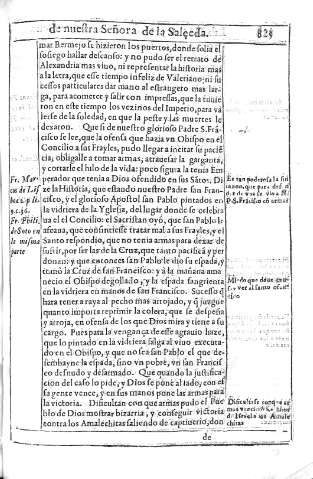 de nuestra Señora de la Salçeda. 825
mar Bermejo se hizieron los puertos, donde solia el
sosiego hallar descanso: y no pudo ser el retrato de
Alexandria mas viuo, ni representar la historia mas
a la letra, que este tiempo infeliz de Valeriano: ni su
cessos particulares dar mano al estrangero mas lar
ga, para acometer y salir con impressas, que la tuuie
ron en este tiempo los vezinos del Imperio, para va
lerse de la soledad, en que la peste y las muertes le
dexaron. Que si de nuestro glorioso Padre S. Frã-
cisco se lee, que la ofensa que hazia vn Obispo en el
Concilio a sus Frayles, pudo llegar a incitar su pacië
cia, obligalle a tomar armas, atrauesar la garganta,
y cortarle el hilo de la vida: poco sigura la tenia Em
perador que tenia a Dios ofendido en sus Sãtos. Di
ze la Historia, que estando nuestro Padre san Fran-
cisco, y el glorioso Apostol san Pablo pintados en
la vidriera de la Yglesia, del lugar donde se celebra
ua el el Concilio: el Sacristan oyò, que san Pablo le
afeaua, que consintiesse tratar mal a sus Frayles, y el
Santo respondio, que no tenia armas para dexar de
sufrir, por ser las de la Cruz, que tanto pacifica y per
donan: y que entonces san Pablo le dio su espada, y
tomò la Cruz de san Francisco: y à la mañana ama-
necio el Obispo degollado, y la espada sangrienta
en la vidriera en manos de san Francisco. Sucesso q̃
hara tener a raya al pecho mas arrojado, y q̃ juzgue
quanto importa reprimir la colera, que se despeña
y arroja, en ofensa de los que Dios mira y tiene a su
cargo. Pues para la vengança de esse agrauio haze,
que lo pintado en la vidriera salga al viuo executa-
do en el Obispo, y que no sea san Pablo el que de-
sembayne la espada, sino vn pobre, vn san Francis
co desnudo y desarmado. Que quando la justifica-
cion del caso lo pide, y Dios se pone al lado, con es
sa gente vence, y en sus manos pone las armas para
la victoria. Dificultan con que armas pudo el Pue
blo de Dios mostrar bizarria, y conseguir victoria
contra los Amalechitas saliendo de captiuerio, don
de
Fr. Mar-
cos de Lis
boa 2. p. li.
Fr. Phili.
de Soto en
la misma
parte